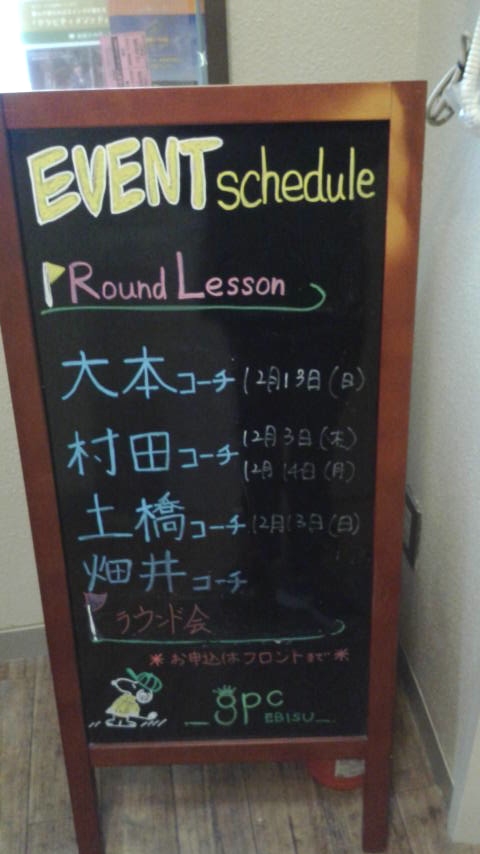 EVENT schedule
Round Lesson
大本コーチ 12月13日(日)
村田コーチ 12月3日(木)
12月14日(月)
土橋コーチ 12月13日(日)
畑井コーチ
ラウンド会
※お申込はフロントまで※
gpc
EBISU